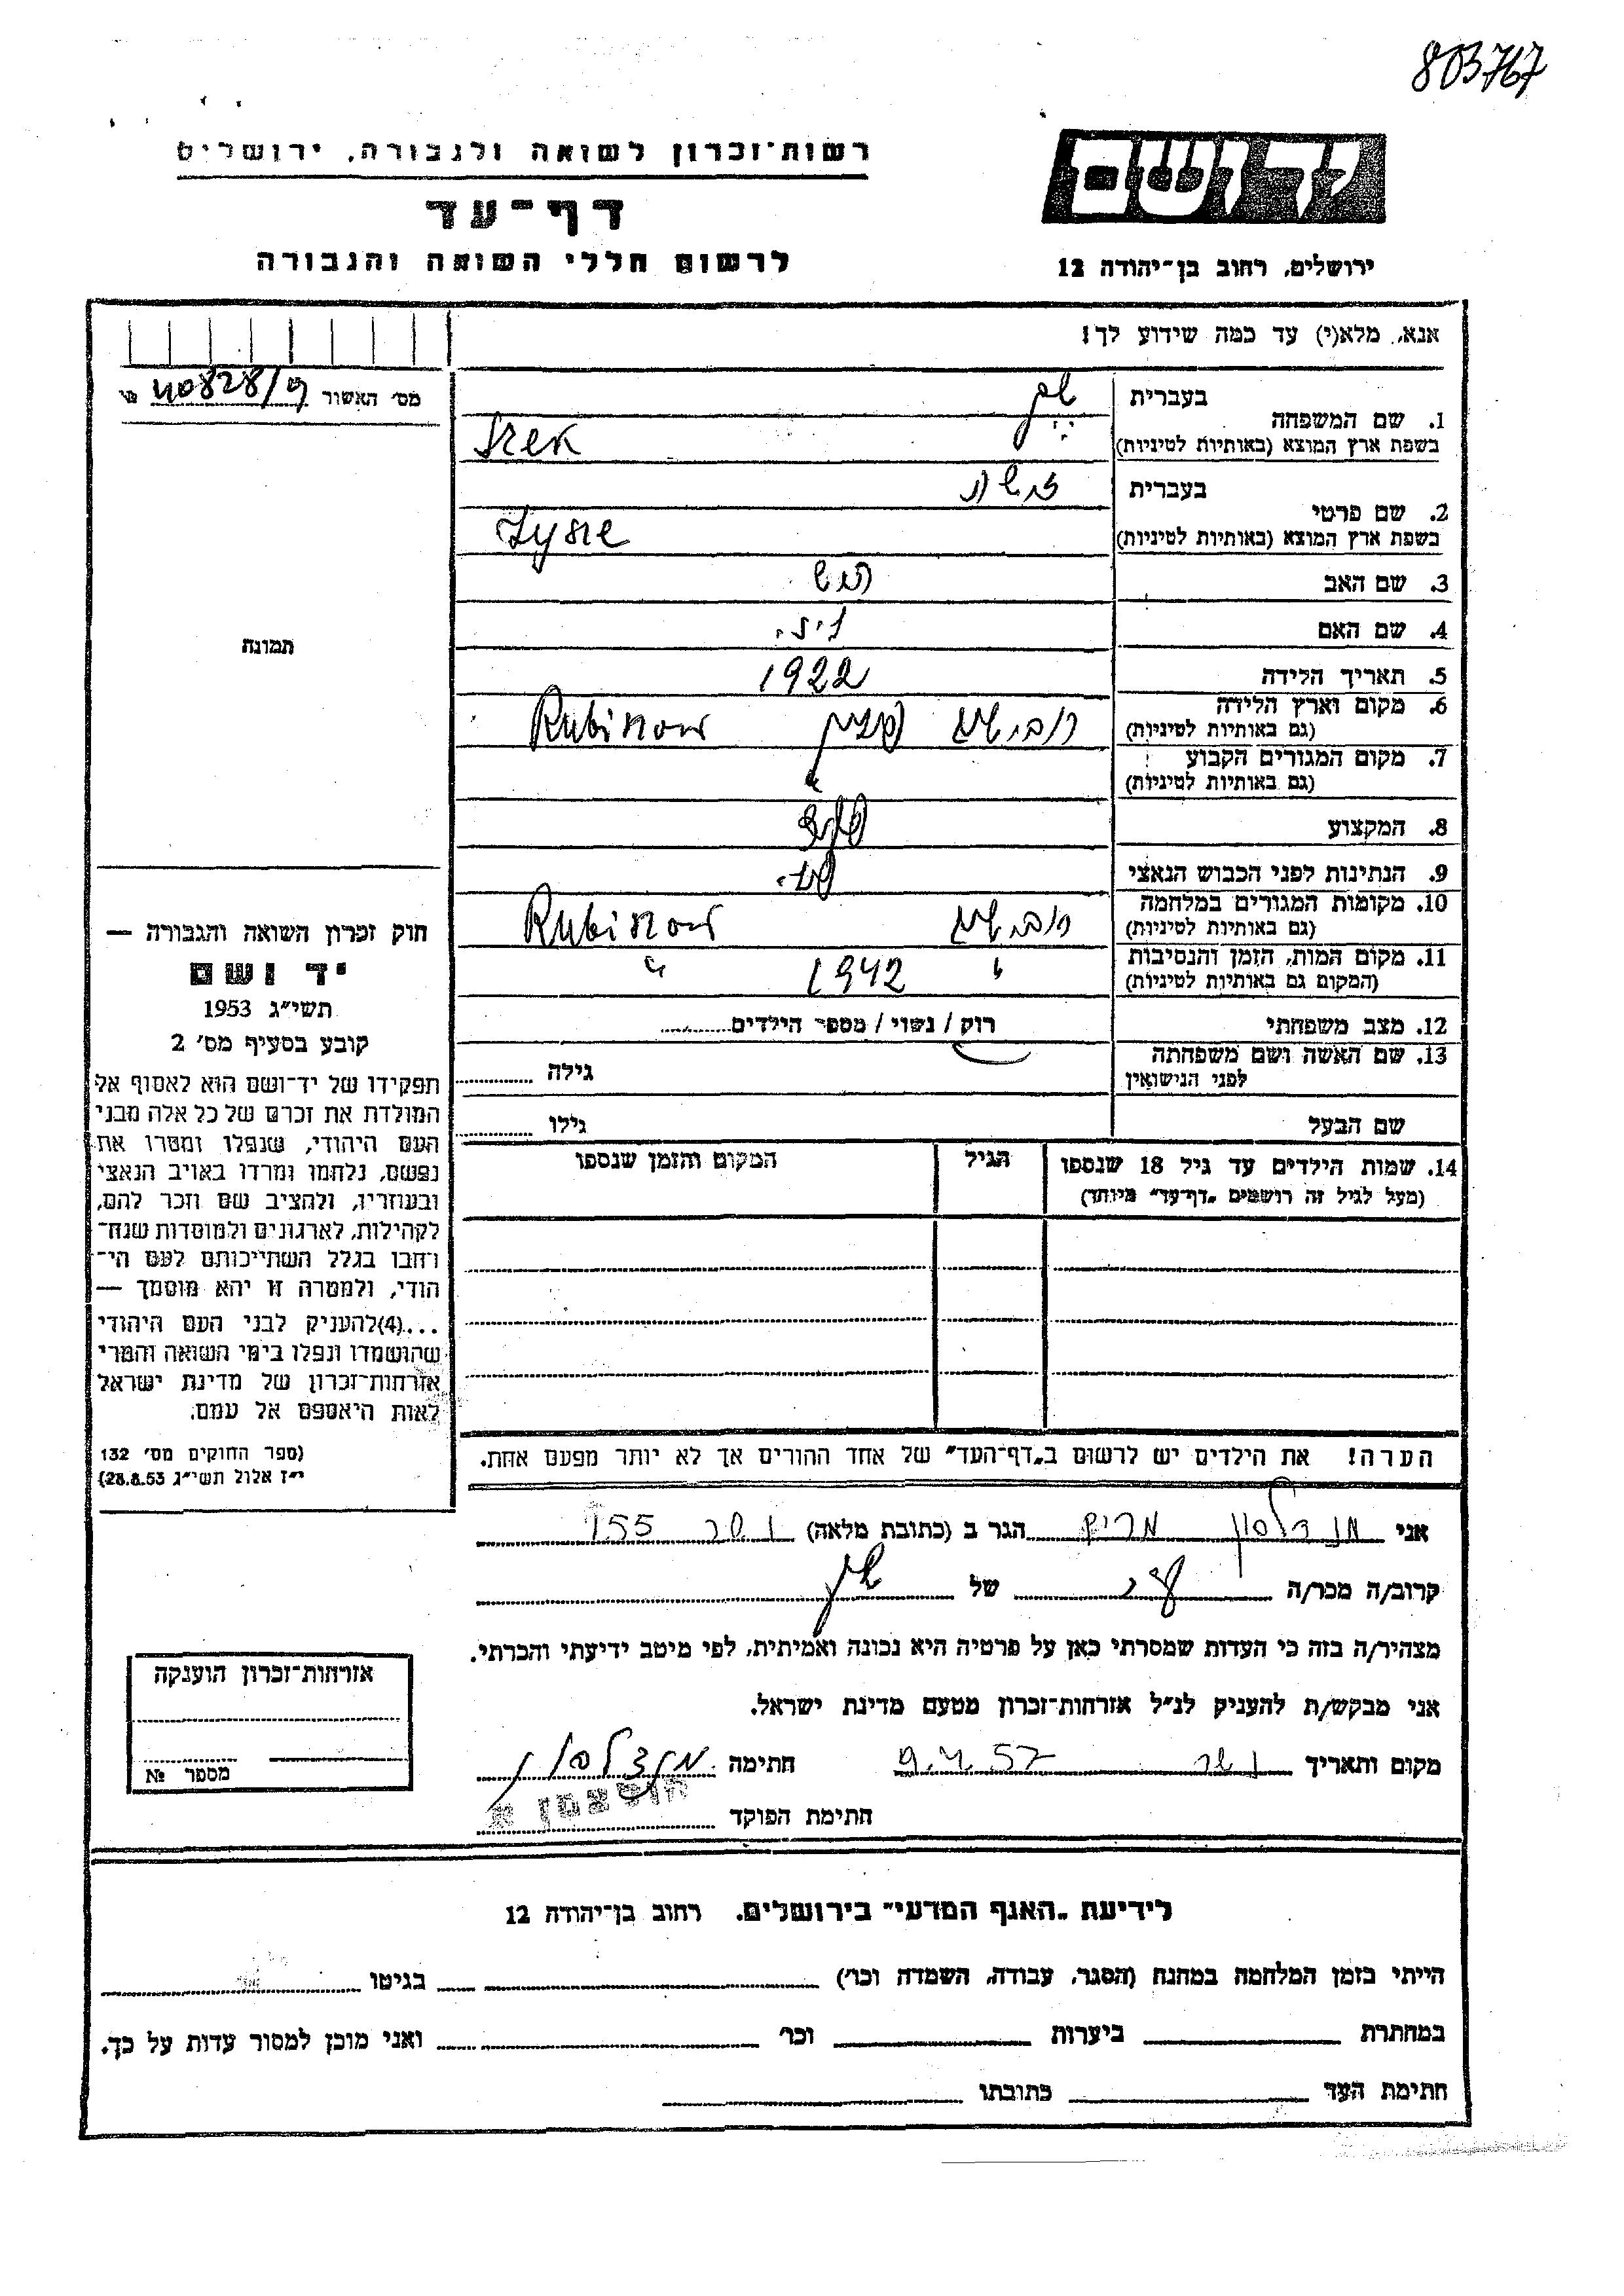 803767
רשות־זכרון לשואה ולגבורה, ירושלים
דף־עד
לרשום חללי השואה והגבורה
יד ושם
ירושלים, רחוב בן־יהודה 12
אנא, מלא(י) עד כמה שידוע לך!
מס׳ האשור
40828/9
1. שם המשפחה
בעברית
בשפת ארץ המוצא (באותיות לטיניות)
Srek
2. שם פרטי
בעברית
בשפת ארץ המוצא (באותיות לטיניות)
Zysie
3. שם האב
4. שם האם
5. תאריך הלידה 1922
6. מקום וארץ הלידה
(גם באותיות לטיניות)
Rubinow
7. מקום המגורים הקבוע
(גם באותיות לטיניות)
8. המקצוע
9. הנתינות לפני הכבוש הנאצי
10. מקומות המגורים במלחמה
(גם באותיות לטיניות)
Rubinow
11. מקום המות, הזמן והנסיבות
(המקום גם באותיות לטיניות)
" 1942 "
12. מצב משפחתי רוק / נשוי / מספר הילדים
13. שם האשה ושם משפחתה
לפני הנישואין
גילה
שם הבעל גילו
14. שמות הילדים עד גיל 18 שנספו
(מעל לגיל זה רושמים „דף־עד״ מיוחד)
הגיל
המקום והזמן שנספו
הערה! את הילדים יש לרשום ב„דף־העד״ של אחד ההורים אך לא יותר מפעם אחת.
תמונה
חוק זכרון השואה והגבורה —
יד ושם
תשי״ג 1953
קובע בסעיף מס׳ 2
תפקידו של יד־ושם הוא לאסוף אל
המולדת את זכרם של כל אלה מבני
העם היהודי, שנפלו ומסרו את
נפשם, נלחמו ומרדו באויב הנאצי
ובעוזריו, ולהציב שם וזכר להם,
לקהילות, לארגונים ולמוסדות שנח־
רחבו בגלל השתייכותם לעם הי־
הודי, ולמטרה זו יהא מוסמך —
...(4)להעניק לבני העם היהודי
שהושמדו ונפלו בימי השואה והמרי
אזרחות־זכרון של מדינת ישראל
לאות היאספם אל עמם.
(ספר החוקים מס׳ 132
י״ז אלול תשי״ג 28.8.53)
אני מנדלסון מרים הגר ב (כתובת מלאה) 155
קרוב/ה מכר/ה של
מצהיר/ה בזה כי העדות שמסרתי כאן על פרטיה היא נכונה ואמיתית, לפי מיטב ידיעתי והכרתי.
אני מבקש/ת להעניק לנ״ל אזרחות־זכרון מטעם מדינת ישראל.
מקום ותאריך 57 חתימה מנדלסון
חתימת הפוקד
אזרחות־זכרון הוענקה
מספר №
לידיעת „האגף המדעי״ בירושלים, רחוב בן־יהודה 12
הייתי בזמן המלחמה במחנה (הסגר, עבודה, השמדה וכו׳) בגיטו
במחתרת ביערות וכו׳ ואני מוכן למסור עדות על כך.
חתימת העד כתובתו